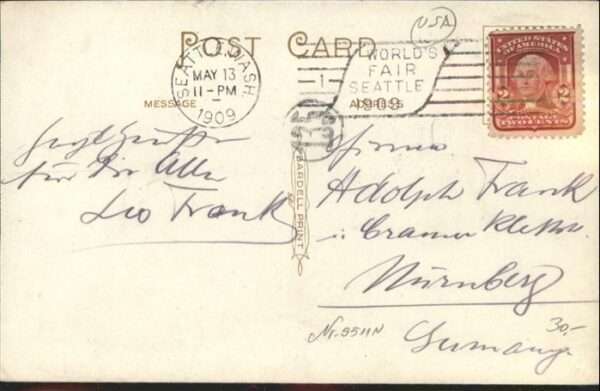 USA
POST CARD
SEATTLE, WASH.
MAY 13
11-PM
1909
1
WORLD'S
FAIR
SEATTLE
1909
UNITED STATES
OF AMERICA
2 2
POSTAGE
TWO CENTS
MESSAGE
ADDRESS
für Dir Alle
Leo Frank
BARDELL PRINT
Firma
Adolph Frank
Nürnberg
Germany
Nr. 9511N
30,-